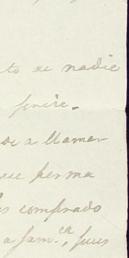 to se nadie
se a llamar
que perma
es comprado
a fam.ª, pues